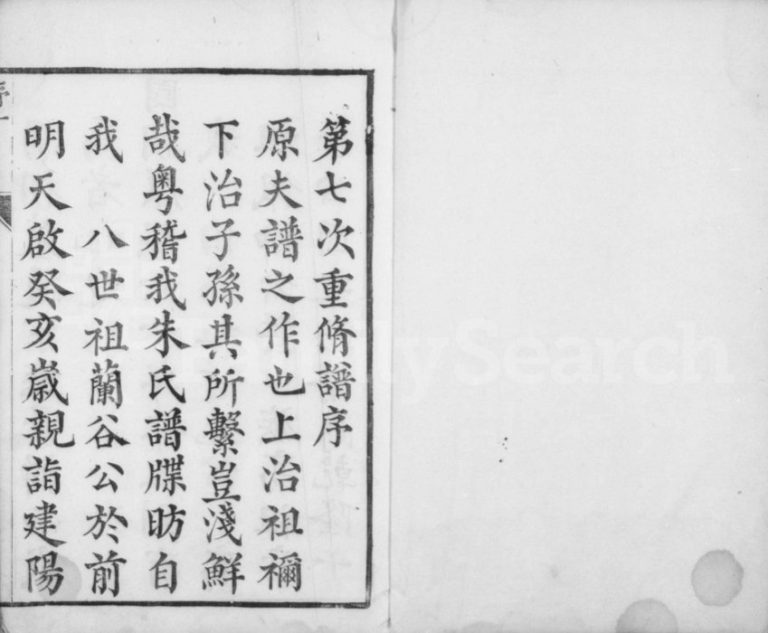 第七次重脩譜序
原夫譜之作也上治祖禰
下治子孫其所繫豈淺鮮
哉粤稽我朱氏譜牒昉自
我 八世祖蘭谷公於前
明天啟癸亥歲親詣建陽
FamilySearch